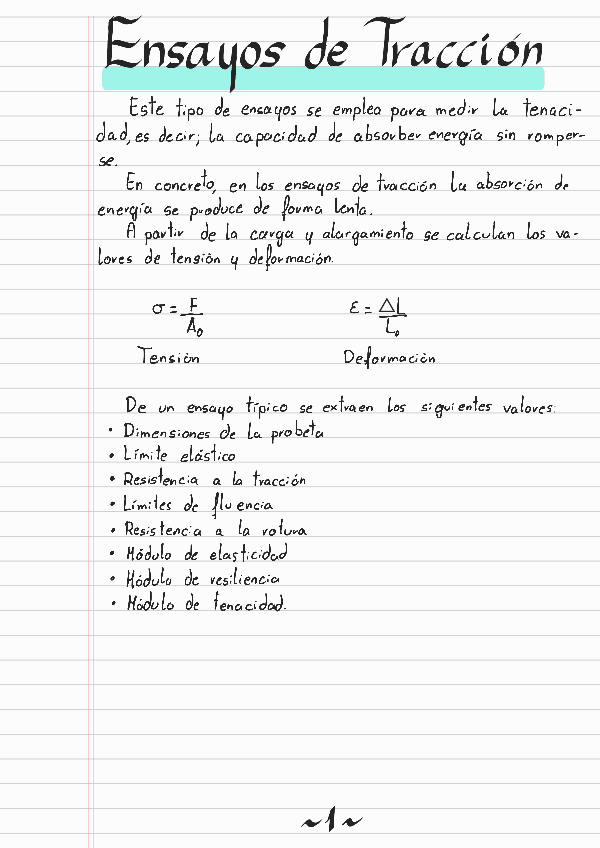 Ensayos de Tracción
Este tipo de ensayos se emplea para medir la tenaci-
dad, es decir, la capacidad de absorber energía sin romper-
se.
En concreto, en los ensayos de tracción la absorción de
energía se produce de forma lenta.
A partir de la carga y alargamiento se calculan los va-
lores de tensión y deformación.
σ = F/A₀ ε = ΔL/L₀
Tensión Deformación
De un ensayo típico se extraen los siguientes valores:
• Dimensiones de la probeta
• Límite elástico
• Resistencia a la tracción
• Límites de fluencia
• Resistencia a la rotura
• Módulo de elasticidad
• Módulo de resiliencia
• Módulo de tenacidad.
~1~